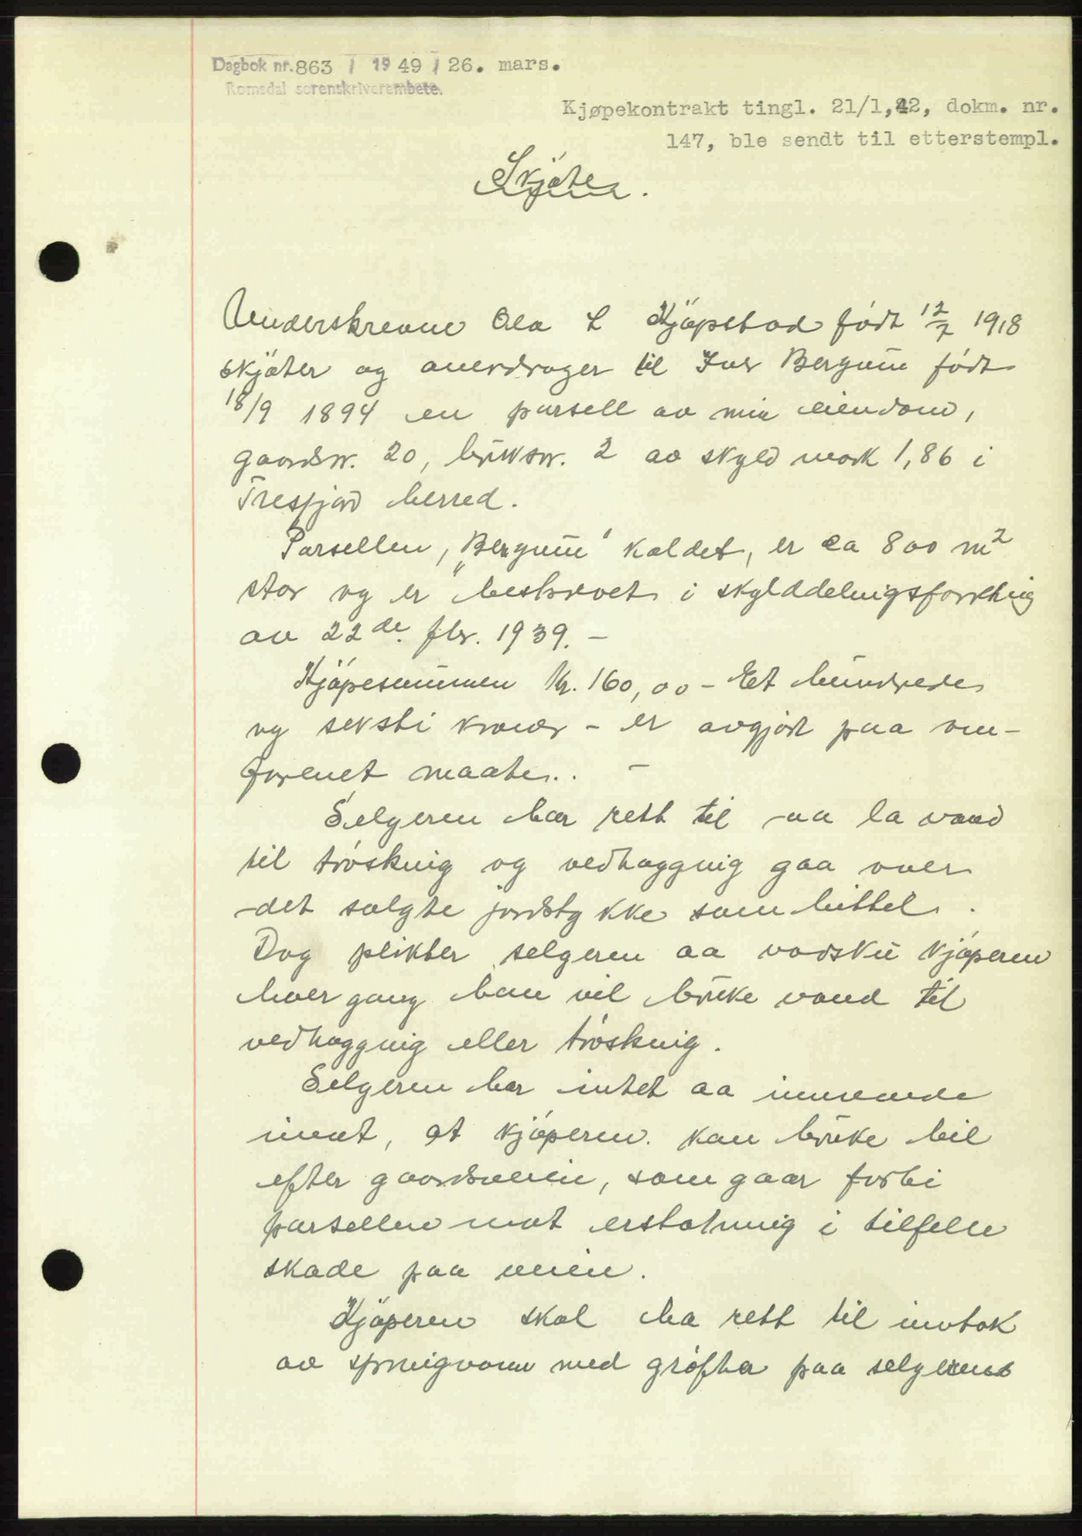 Dagbok nr. 863 / 1949 / 26. mars.
Romsdal sorenskriverembete.
Kjøpekontrakt tingl. 21/1,42, dokm. nr.
147, ble sendt til etterstempl.
Skjøte.
Underskrevne Ola L Kjöpstad födt 12/7 1918
skjöter og overdrager til Ivar Bergum födt
18/9 1894 en parsell av min eiendom,
gaardsnr. 20, bruksnr. 2 av skyld mark 1,86 i
Tresfjord herred.
Parsellen, "Bergum" kaldet, er ca 800 m²
stor og er beskrevet i skylddelingsforretning
av 22de fbr. 1939. –
Kjöpesummen kr. 160,00 – Et hundrede
og seksti kroner – er avgjort paa om-
forenet maate. –
Selgeren har rett til aa la vand
til tröskning og vedhogging gaa over
det solgte jordstykke som hittel.
Dog plikter selgeren aa varsku kjöperen
hver gang han vil bruke vand til
vedhogging eller tröskning.
Selgeren har intet aa innvende
imot, at kjöperen kan bruke bil
efter gaardsveien, som gaar forbi
parsellen mot erstatning i tilfelle
skade paa veien.
Kjöperen skal ha rett til inntak
av springvann med gröfter paa selgerens